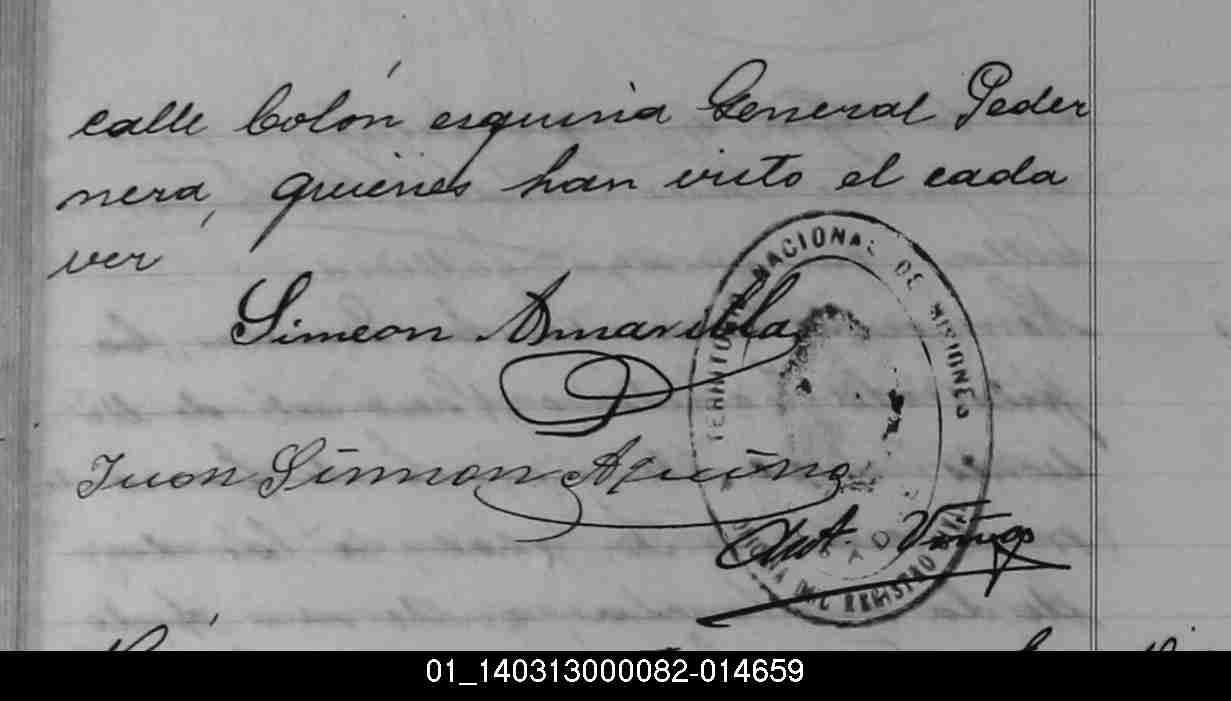 calle Colón esquina General Peder
nera, quiénes han visto el cada
ver
Simeon Amarilla
Juan Simmon Aquino
TERRITORIO NACIONAL DE MISIONES
OFICINA DEL REGISTRO CIVIL
Ant.
01_140313000082-014659